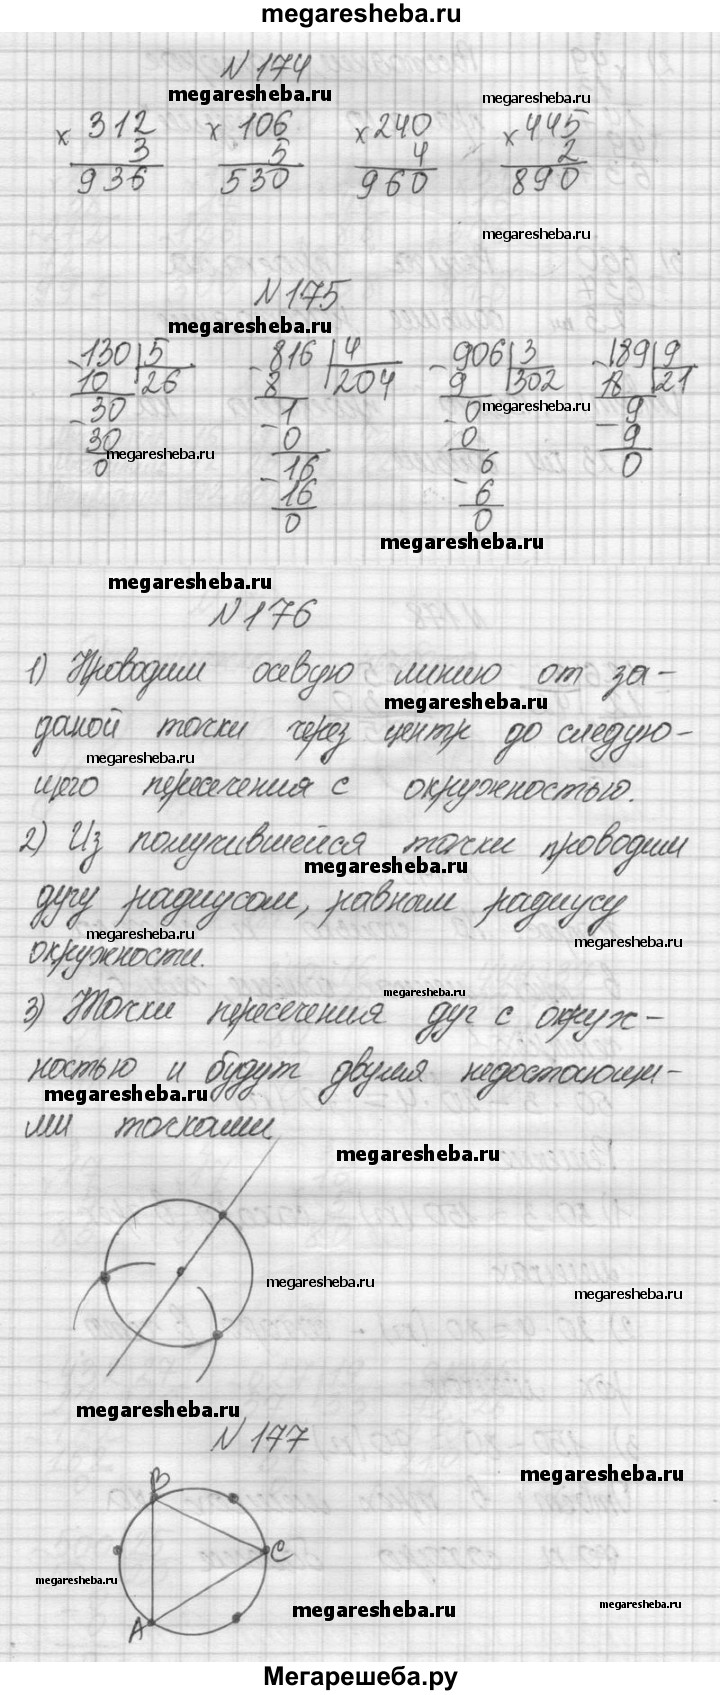 megaresheba.ru
N 174
megaresheba.ru
megaresheba.ru
× 312 × 106 × 240 × 445
3 5 4 2
936 530 960 890
megaresheba.ru
N 175
megaresheba.ru
- 130 5 - 816 4 - 906 3 - 189 9
10 26 8 204 9 302 18 21
megaresheba.ru
- 30 - 1 - 0 - 9
30 0 0 9
megaresheba.ru
0 - 16 - 6 0
16 6
0 0
megaresheba.ru
megaresheba.ru
N 176
1) Проводим осевую линию от за-
megaresheba.ru
даной точки через центр до следую-
megaresheba.ru
щего пересечения с окружностью.
2) Из получившейся точки проводим
megaresheba.ru
дугу радиусом, равным радиусу
megaresheba.ru
megaresheba.ru
окружности.
megaresheba.ru
3) Точки пересечения дуг с окруж-
ностью и будут двумя недостающи-
megaresheba.ru
ми точками
megaresheba.ru
megaresheba.ru
megaresheba.ru
megaresheba.ru
N 177
megaresheba.ru
B
C
megaresheba.ru
A
megaresheba.ru
megaresheba.ru
Мегарешеба.ру